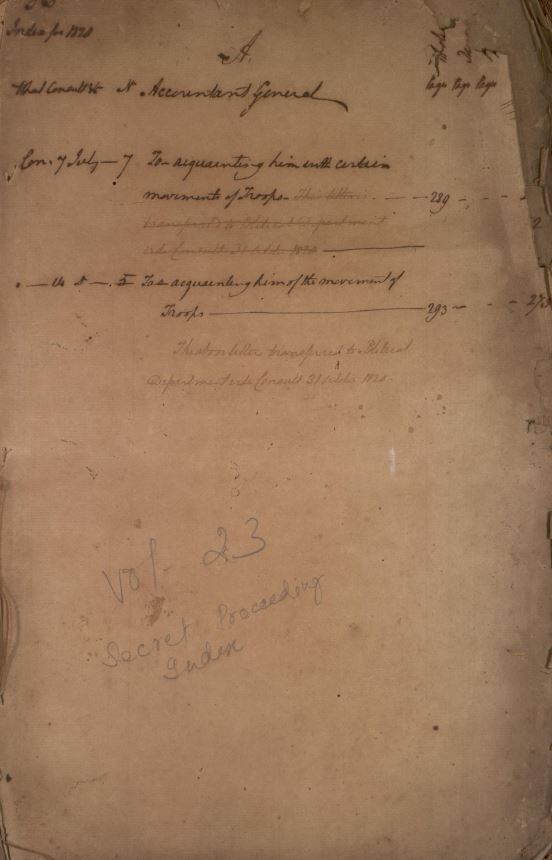 Index for 1820
A.
What Consult &c No Accountant General Page Page Page
Con. 7 July — 7 To — acquainting him with certain
movements of Troops — This letter 289
transferred to Political Department
vide Consult 31 October 1820
" — 14 " — 5 To — acquainting him of the movement of
Troops — 293
The above letter transferred to Political
Department vide Consult 31 October 1820.
Vol. 23
Secret Proceeding
Index